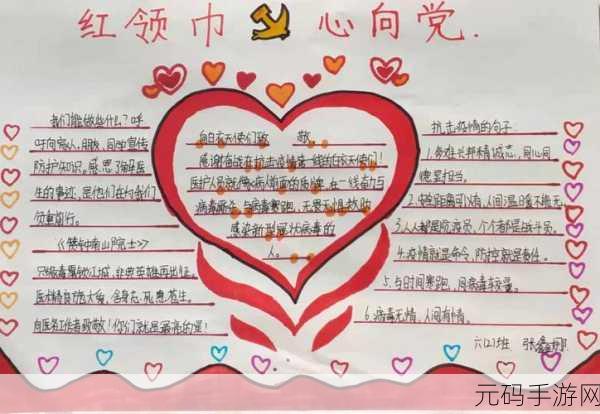 红领巾 心向党.
我们能做些什么?呼
吁向家人,朋友,同学宣传
防护知识。感恩了解医
生的事迹,是他们在为我们
负重前行。
《赞钟南山院士》
只缘毒霾锁江城,非典英雄再出征。
医术精良施大爱,舍身忘死惠苍生。
向医务工作者致敬!你们就是最亮的星!
向白衣天使们致敬
感谢奋战在抗击疫情第一线的白衣天使们!
医护人员就像病人前面的盾牌,在一线奋力与
病毒搏斗,与病毒赛跑,无畏无惧救助
感染新型冠状病毒的
人。
抗击疫情的句子
1.务难兴邦精诚志,同心同
德更担当。
2.唯独距离可以有,人间温暖不能无
3.人人都是防疫员,个个都是战斗员。
4.疫情就是命令,防控就是责任。
5.与时间赛跑,同病毒较量。
6.病毒无情,人间有情。
六(2)班
元码手游网